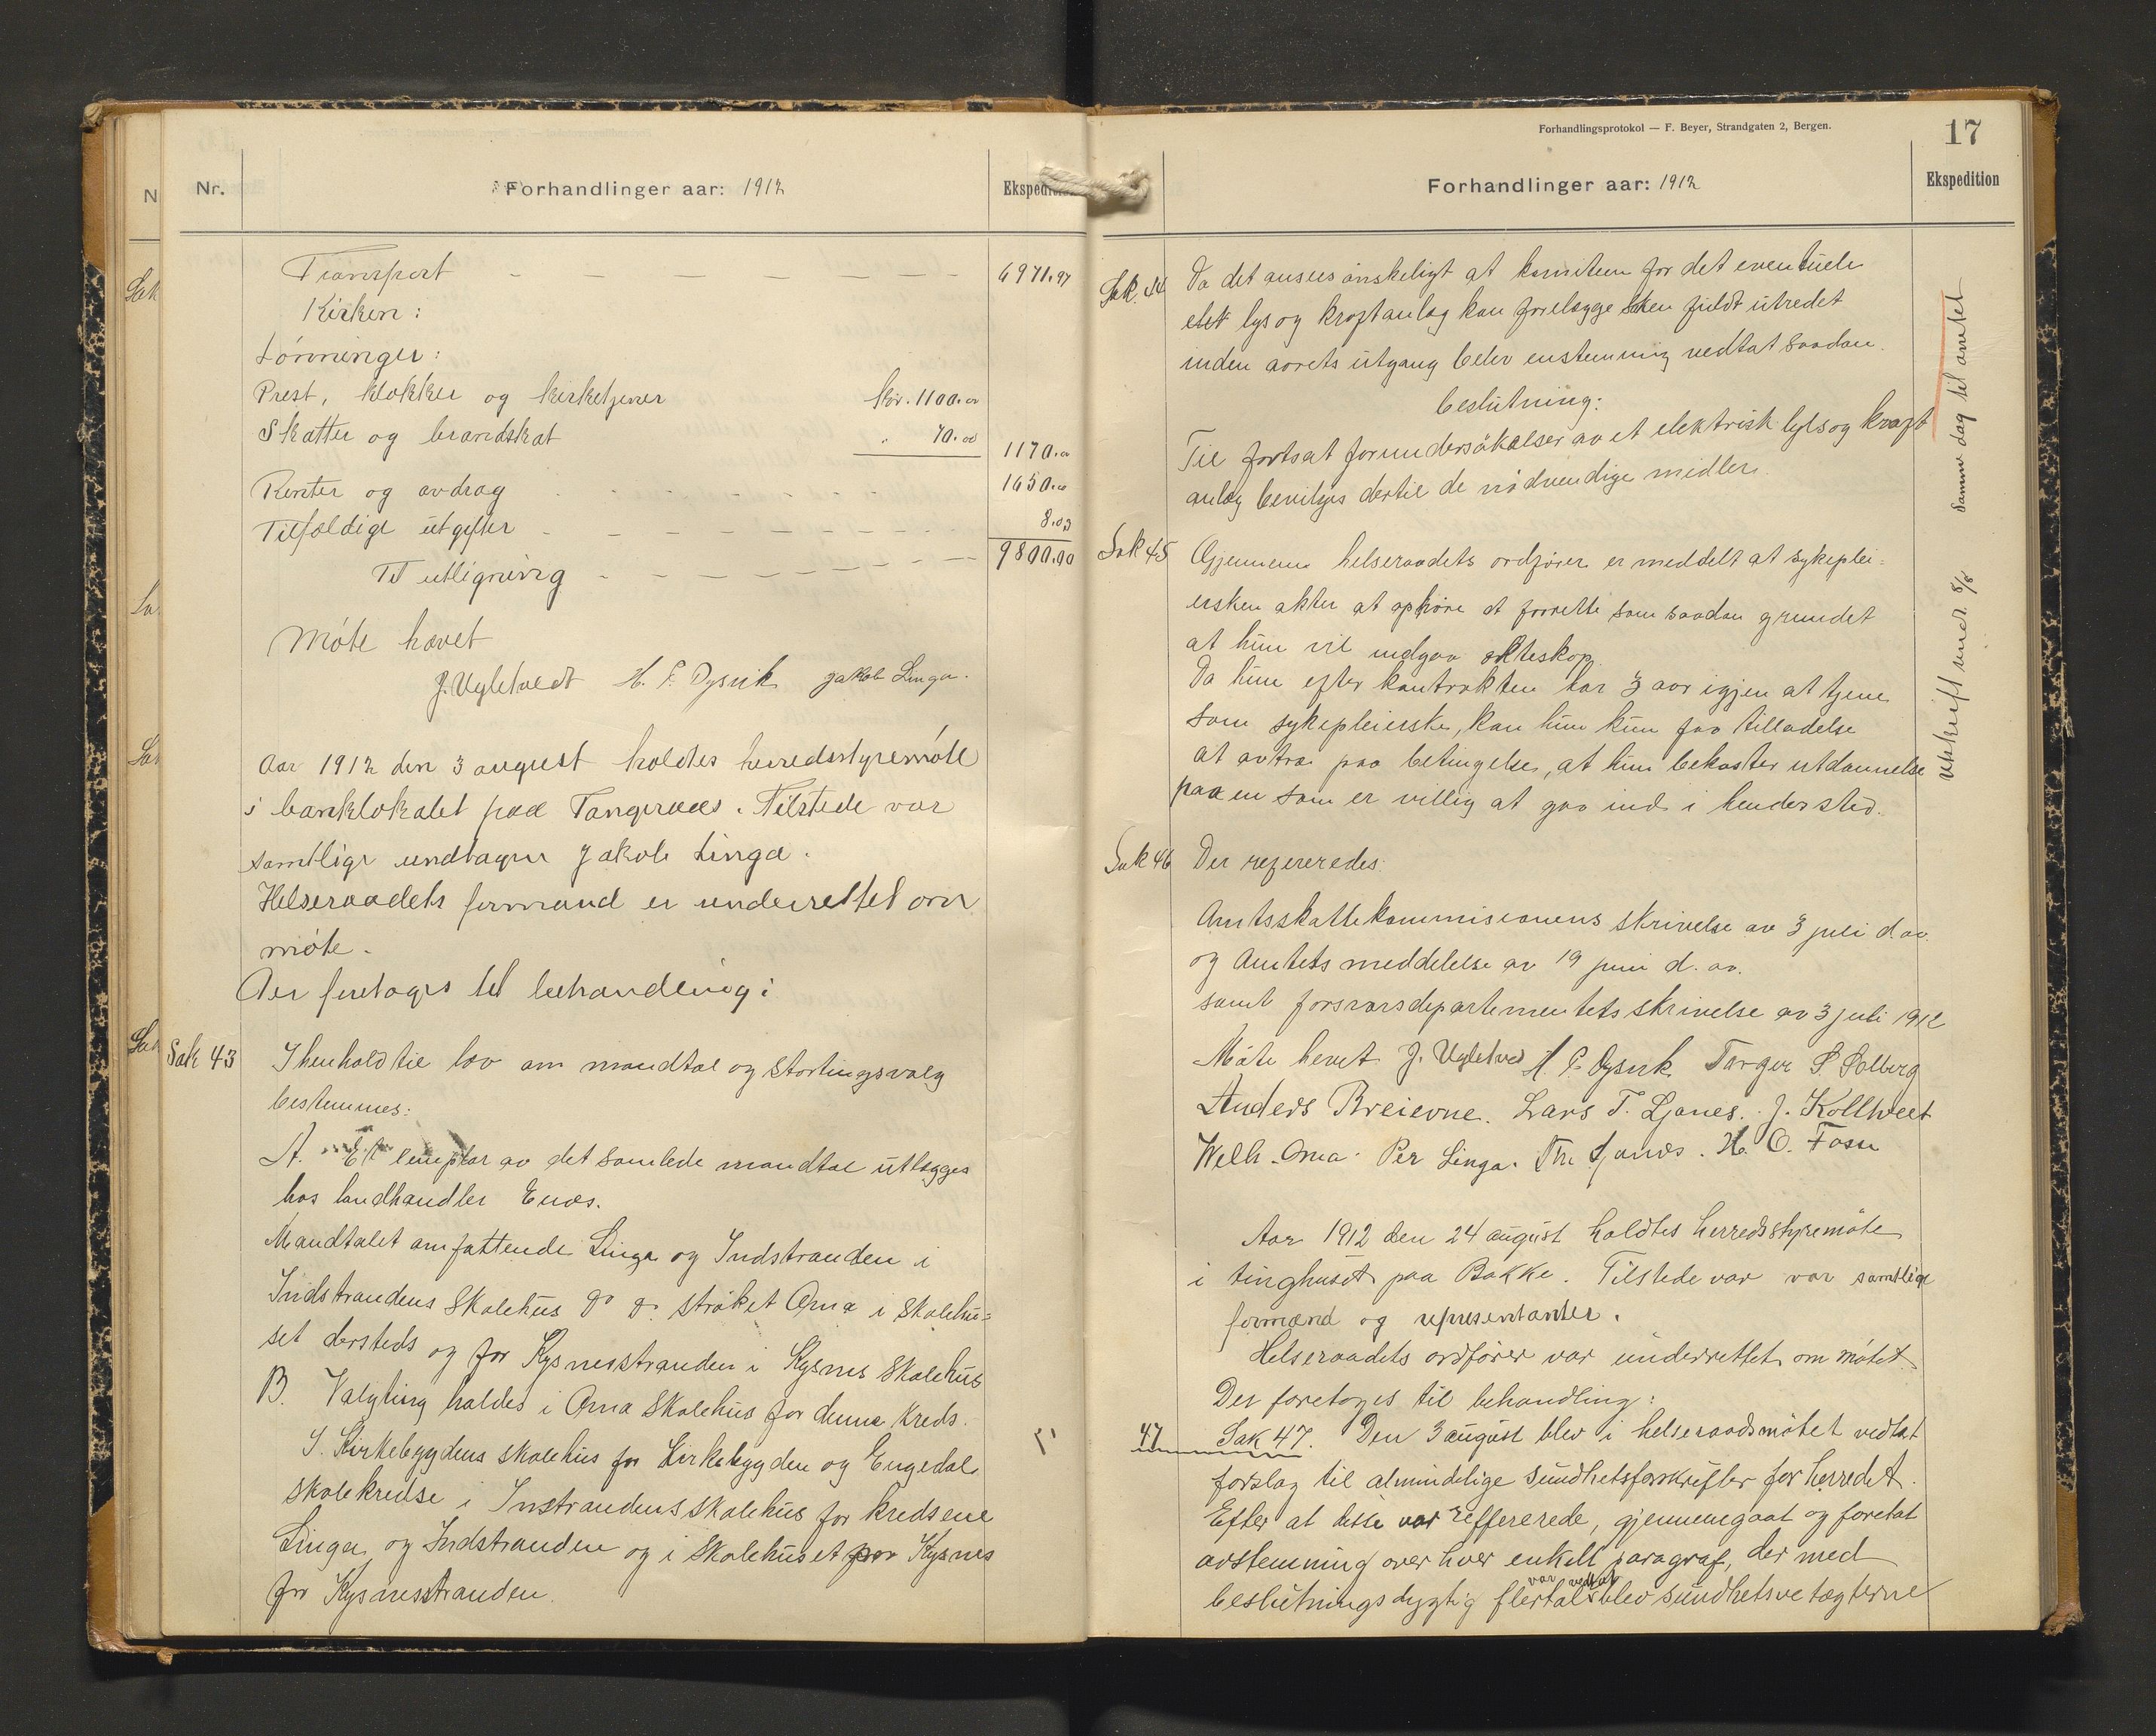 Nr.
Forhandlinger aar: 1912
Ekspedition
Transport 6971.97
Kirken:
Lønninger:
Prest, klokker og kirketjener kr. 1100.00
Skatter og brandskat " 70.00 1170.00
Renter og avdrag 1650.00
Tilfældige utgifter 8.03
Til utligning 9800.00
Møte hævet
J. Ugletvedt H. P. Dysvik Jakob Linga.
Aar 1912 den 3 august holdtes herredsstyremøte
i banklokalet paa Tangeraas. Tilstede var
samtlige undtagen Jakob Linga.
Helseraadets formand er underrettet om
møte.
Der foretoges til behandling:
Sak 43 I henhold til lov om mandtal og stortingsvalg
bestemmes:
A. Et av det samlede mandtal utlægges
hos landhandler Enæs.
Mandtalet omfattende Linga og Indstranden i
Indstrandens Skolehus do do strøket Oma i skolehu=
set dersteds og for Kysnesstranden i Kysnes Skolehus
B. Valgting holdes i Oma Skolehus for denne Kreds.
I Kirkebygdens skolehus for Kirkebygden og Engedals
skolekredse i Instrandens skolehus for kredsene
Linga og Indstranden og i Skolehuset paa Kysnes
for Kysnesstranden.
Forhandlingsprotokol — F. Beyer, Strandgaten 2, Bergen.
17
Forhandlinger aar: 1912
Ekspedition
Sak. 44 Da det ansees ønskeligt at komiteen for det eventuele
elekt lys og kraftanlæg kan forelægge saken fuldt utredet
inden aarets utgang belev enstemmig vedtat saadan
beslutning:
Til fortsat forundersøkelser av et elektrisk lys og kraft
anlæg bevilges dertil de nødvendige midler.
Sak 45 Gjennem helseraadets ordfører er meddelt at sykeplei=
ersken akter at ophøre at forrette som saadan grundet
at hun vil indgaa ekteskap.
Da hun efter kontrakten har 3 aar igjen at tjene
som sykepleierske, kan hun kun faa tilladelse
at avtræ paa betingelse, at hun bekoster utdannelse
paa en som er villig at gaa ind i hendes sted.
Utskrift sendt 8/8 samme dag til amtet
Sak 46 Der refereredes:
Amtsskattekommisionens skrivelse av 3 juli d. aa.
og Amtets meddelelse av 19 juni d. aa.
samt forsvarsdepartementets skrivelse av 3 juli 1912
Møte hevet J. Ugletved H. P. Dysvik Torger S. Solberg
Anders Breievne. Lars T. Ljones. J. Kolltveit
Welh. Oma. Per Linga. Th. Ljones. H. O. Fosse
Aar 1912 den 24 august holdtes herredsstyremøte
i tinghuset paa Bakke. Tilstede var var samtlige
formænd og representanter.
Helseraadets ordfører var underrettet om møtet.
Der foretoges til behandling:
47 Sak 47. Den 3 august blev i helseraadsmøtet vedtat
forslag til almindelige sundhetsforskrifter for herredet.
Efter at disse var reffererede, gjennemgaat og foretat
avstemning over hver enkelt paragraf, der med
beslutningsdygtig flertal var vedtat blev sundhetsvetægterne